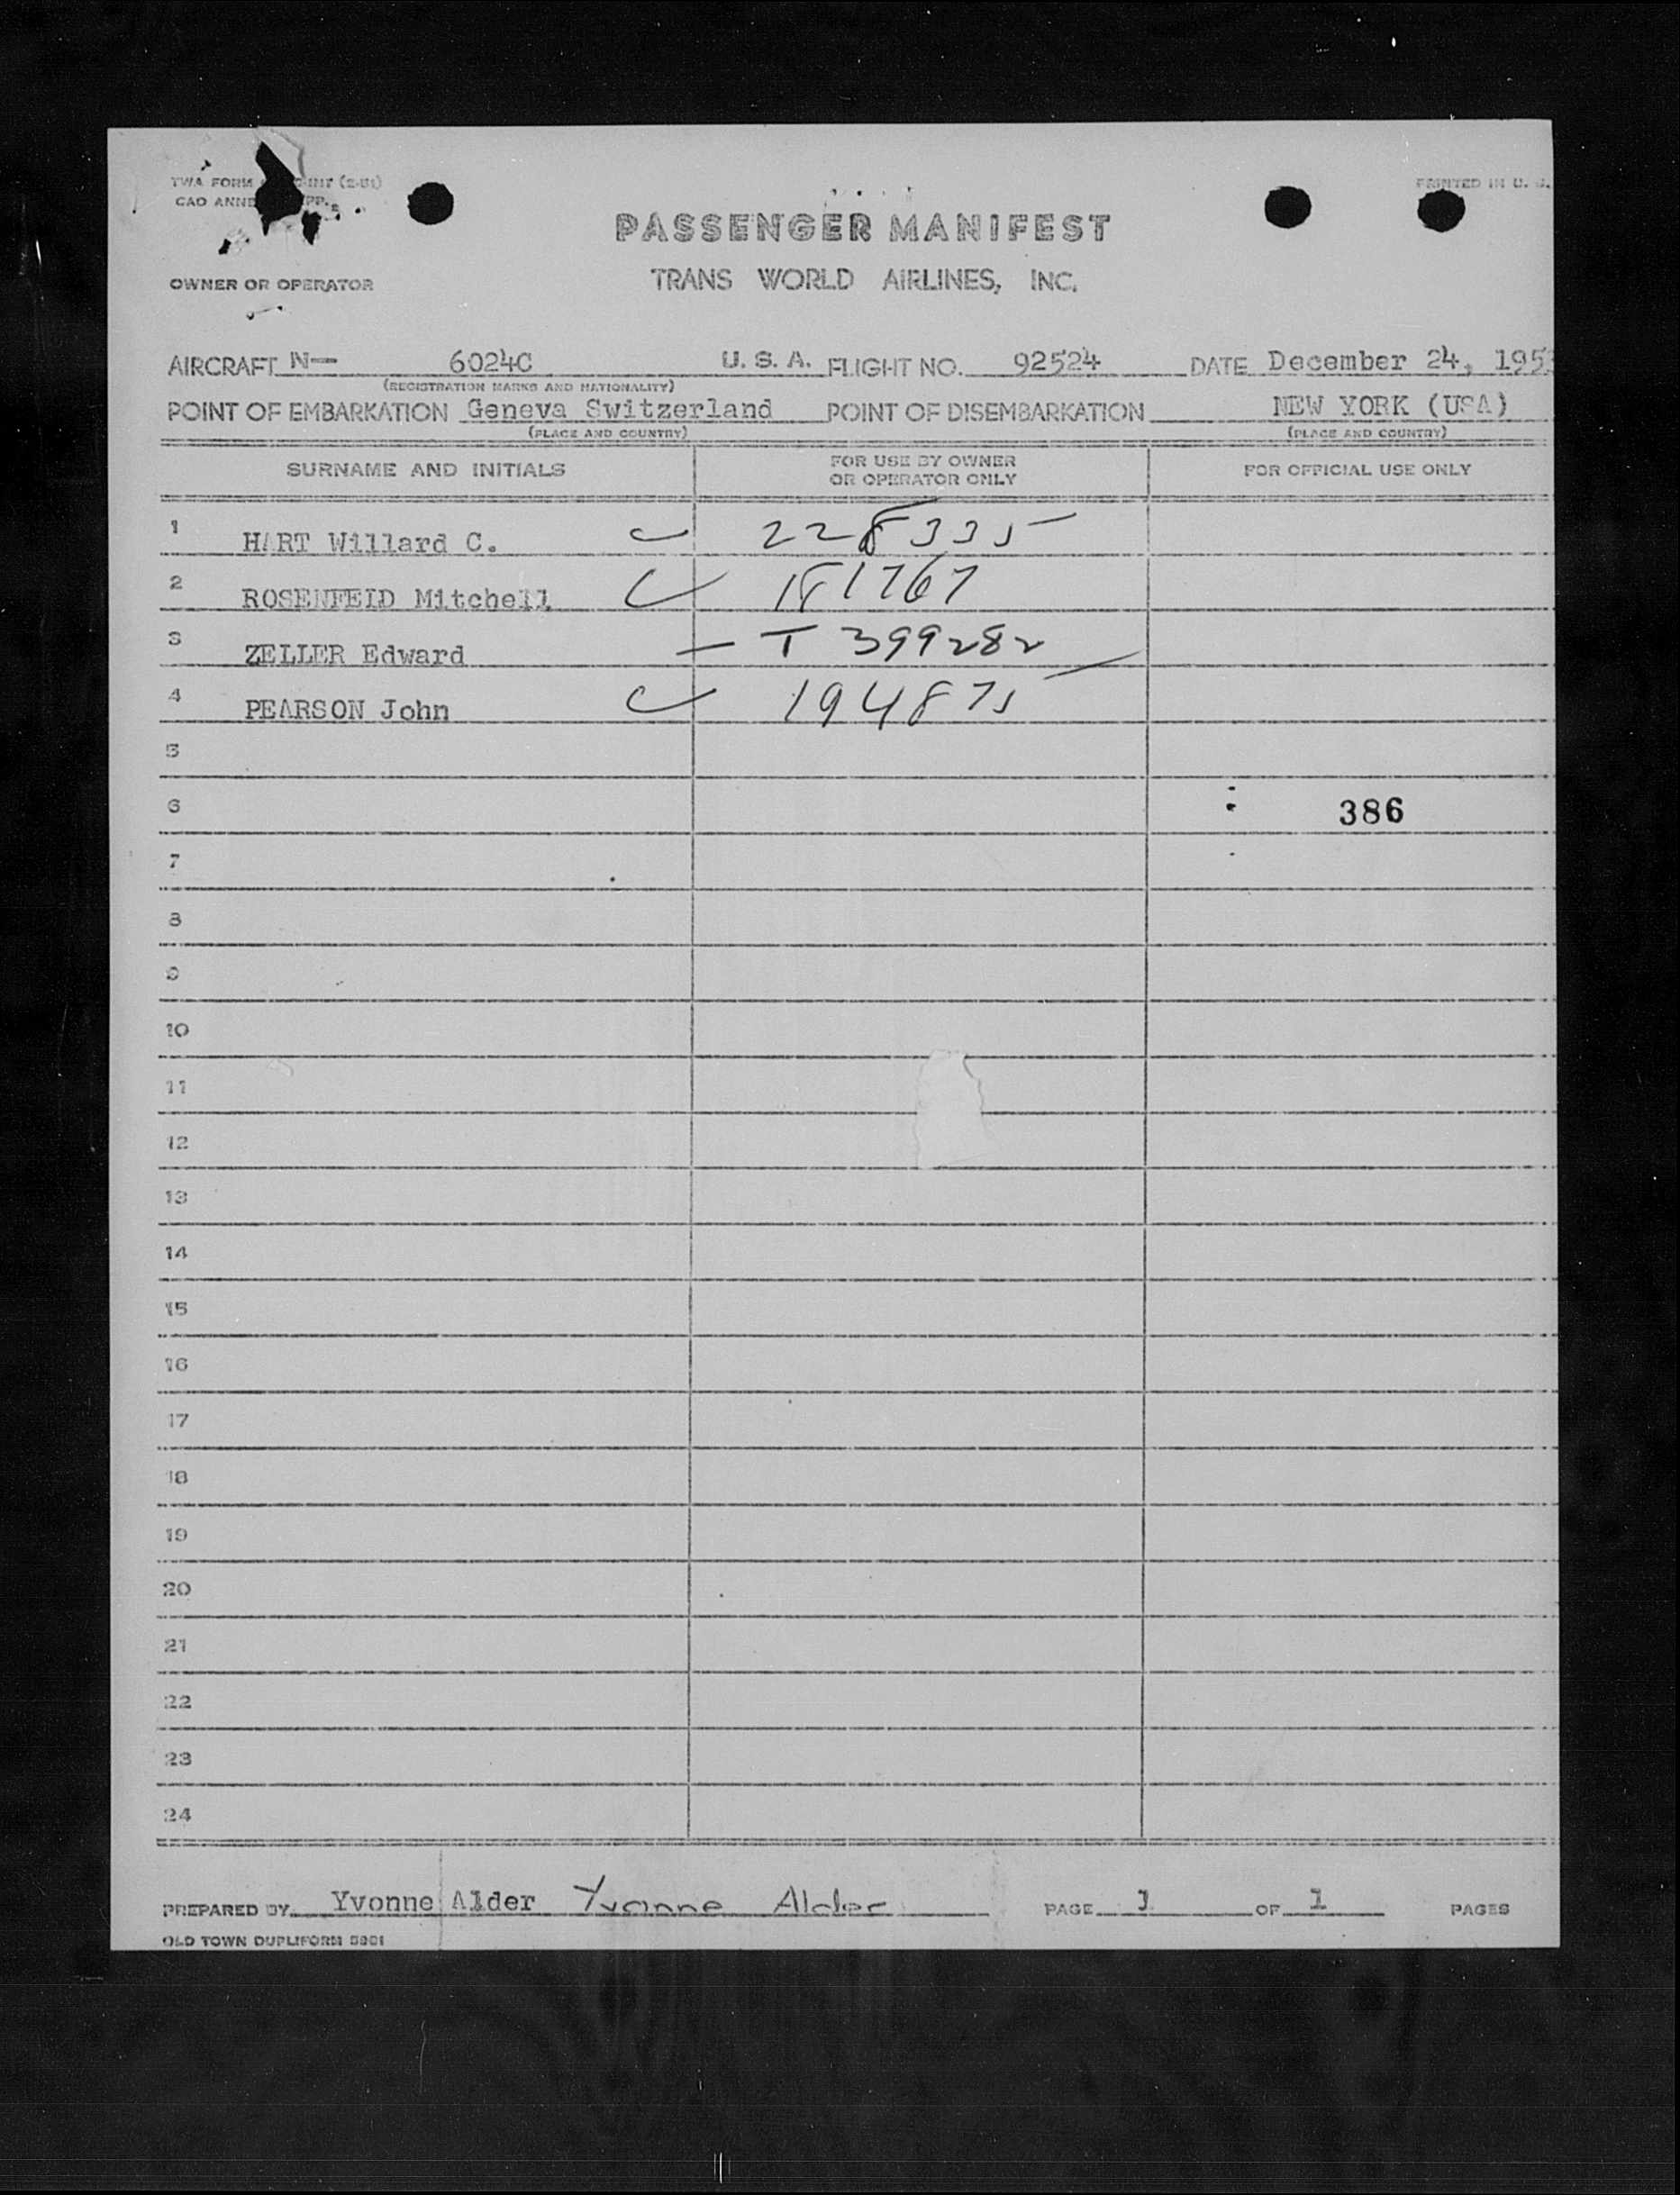 TWA FORM INT (2-51)
PRINTED IN U. S.
CAO ANNE PP.
PASSENGER MANIFEST
TRANS WORLD AIRLINES, INC.
OWNER OR OPERATOR
AIRCRAFT N- 6024C U. S. A. FLIGHT NO. 92524 DATE December 24, 1953
(REGISTRATION MARKS AND NATIONALITY)
POINT OF EMBARKATION Geneva Switzerland POINT OF DISEMBARKATION NEW YORK (USA)
(PLACE AND COUNTRY) (PLACE AND COUNTRY)
SURNAME AND INITIALS FOR USE BY OWNER OR OPERATOR ONLY FOR OFFICIAL USE ONLY
1 HART Willard C. 228335
2 ROSENFEID Mitchell 181767
3 ZELLER Edward T 399282
4 PEARSON John 194875
5
6 386
7
8
9
10
11
12
13
14
15
16
17
18
19
20
21
22
23
24
PREPARED BY Yvonne Alder Yvonne Alder PAGE 1 OF 1 PAGES
OLD TOWN DUPLIFORM